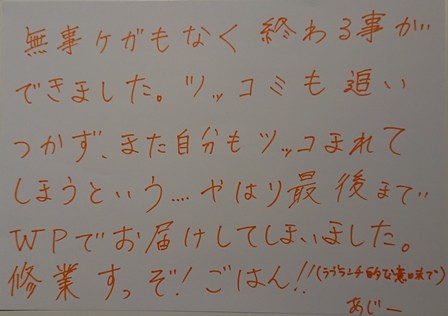 無事ケガもなく終わる事が
できました。ツッコミも追い
つかず、また自分もツッコまれて
しまうという....やはり最後まで
WPでお届けしてしまいました。
修業すっぞ!ごはん!!(うづらンチ的な意味で)
あじー